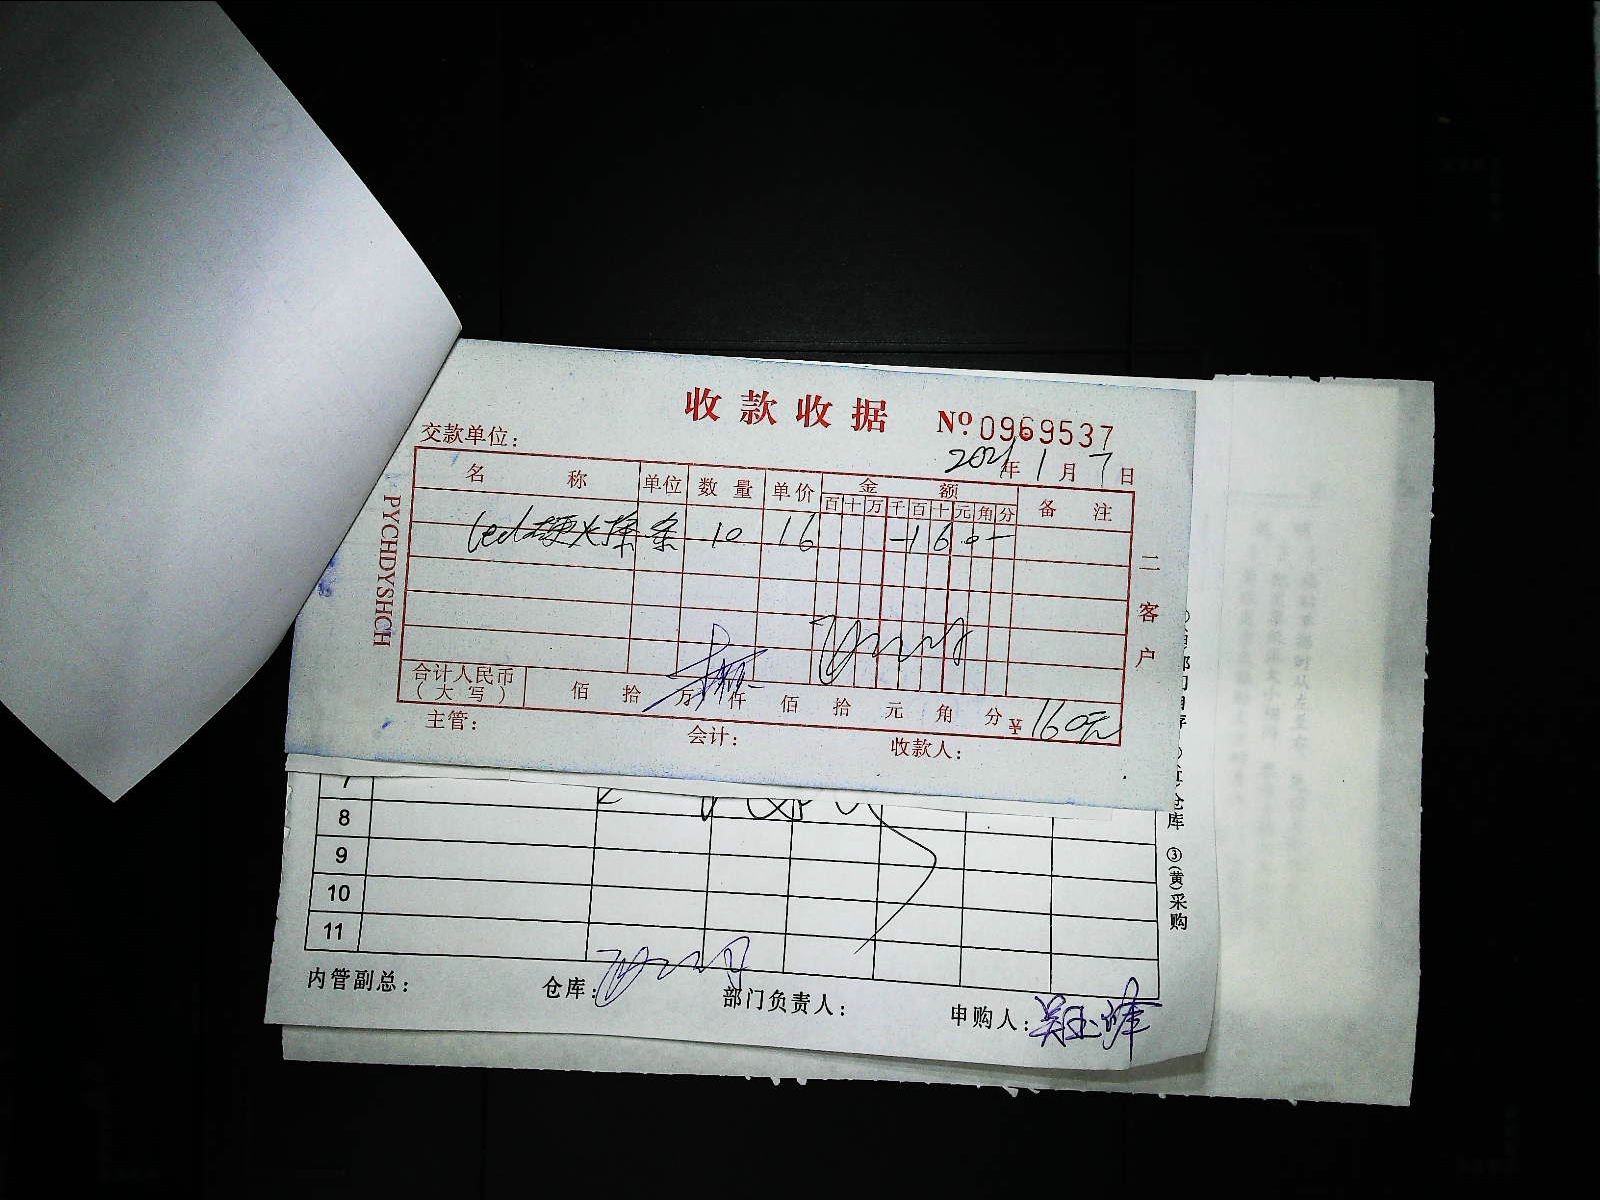 收款收据 Nº 0969537
交款单位： 2021年1月7日
名称 单位 数量 单价 金额 备注
百十万千百十元角分
led硬灯条 条 10 16 1 6 0 -
合计人民币
（大写） 佰 拾 万 仟 佰 拾 元 角 分 ¥160元
主管： 会计： 收款人：
PYCHDYSHCH
二客户
7
8
9
10
11
仓库 ③(黄)采购
内管副总： 仓库： 部门负责人： 申购人：